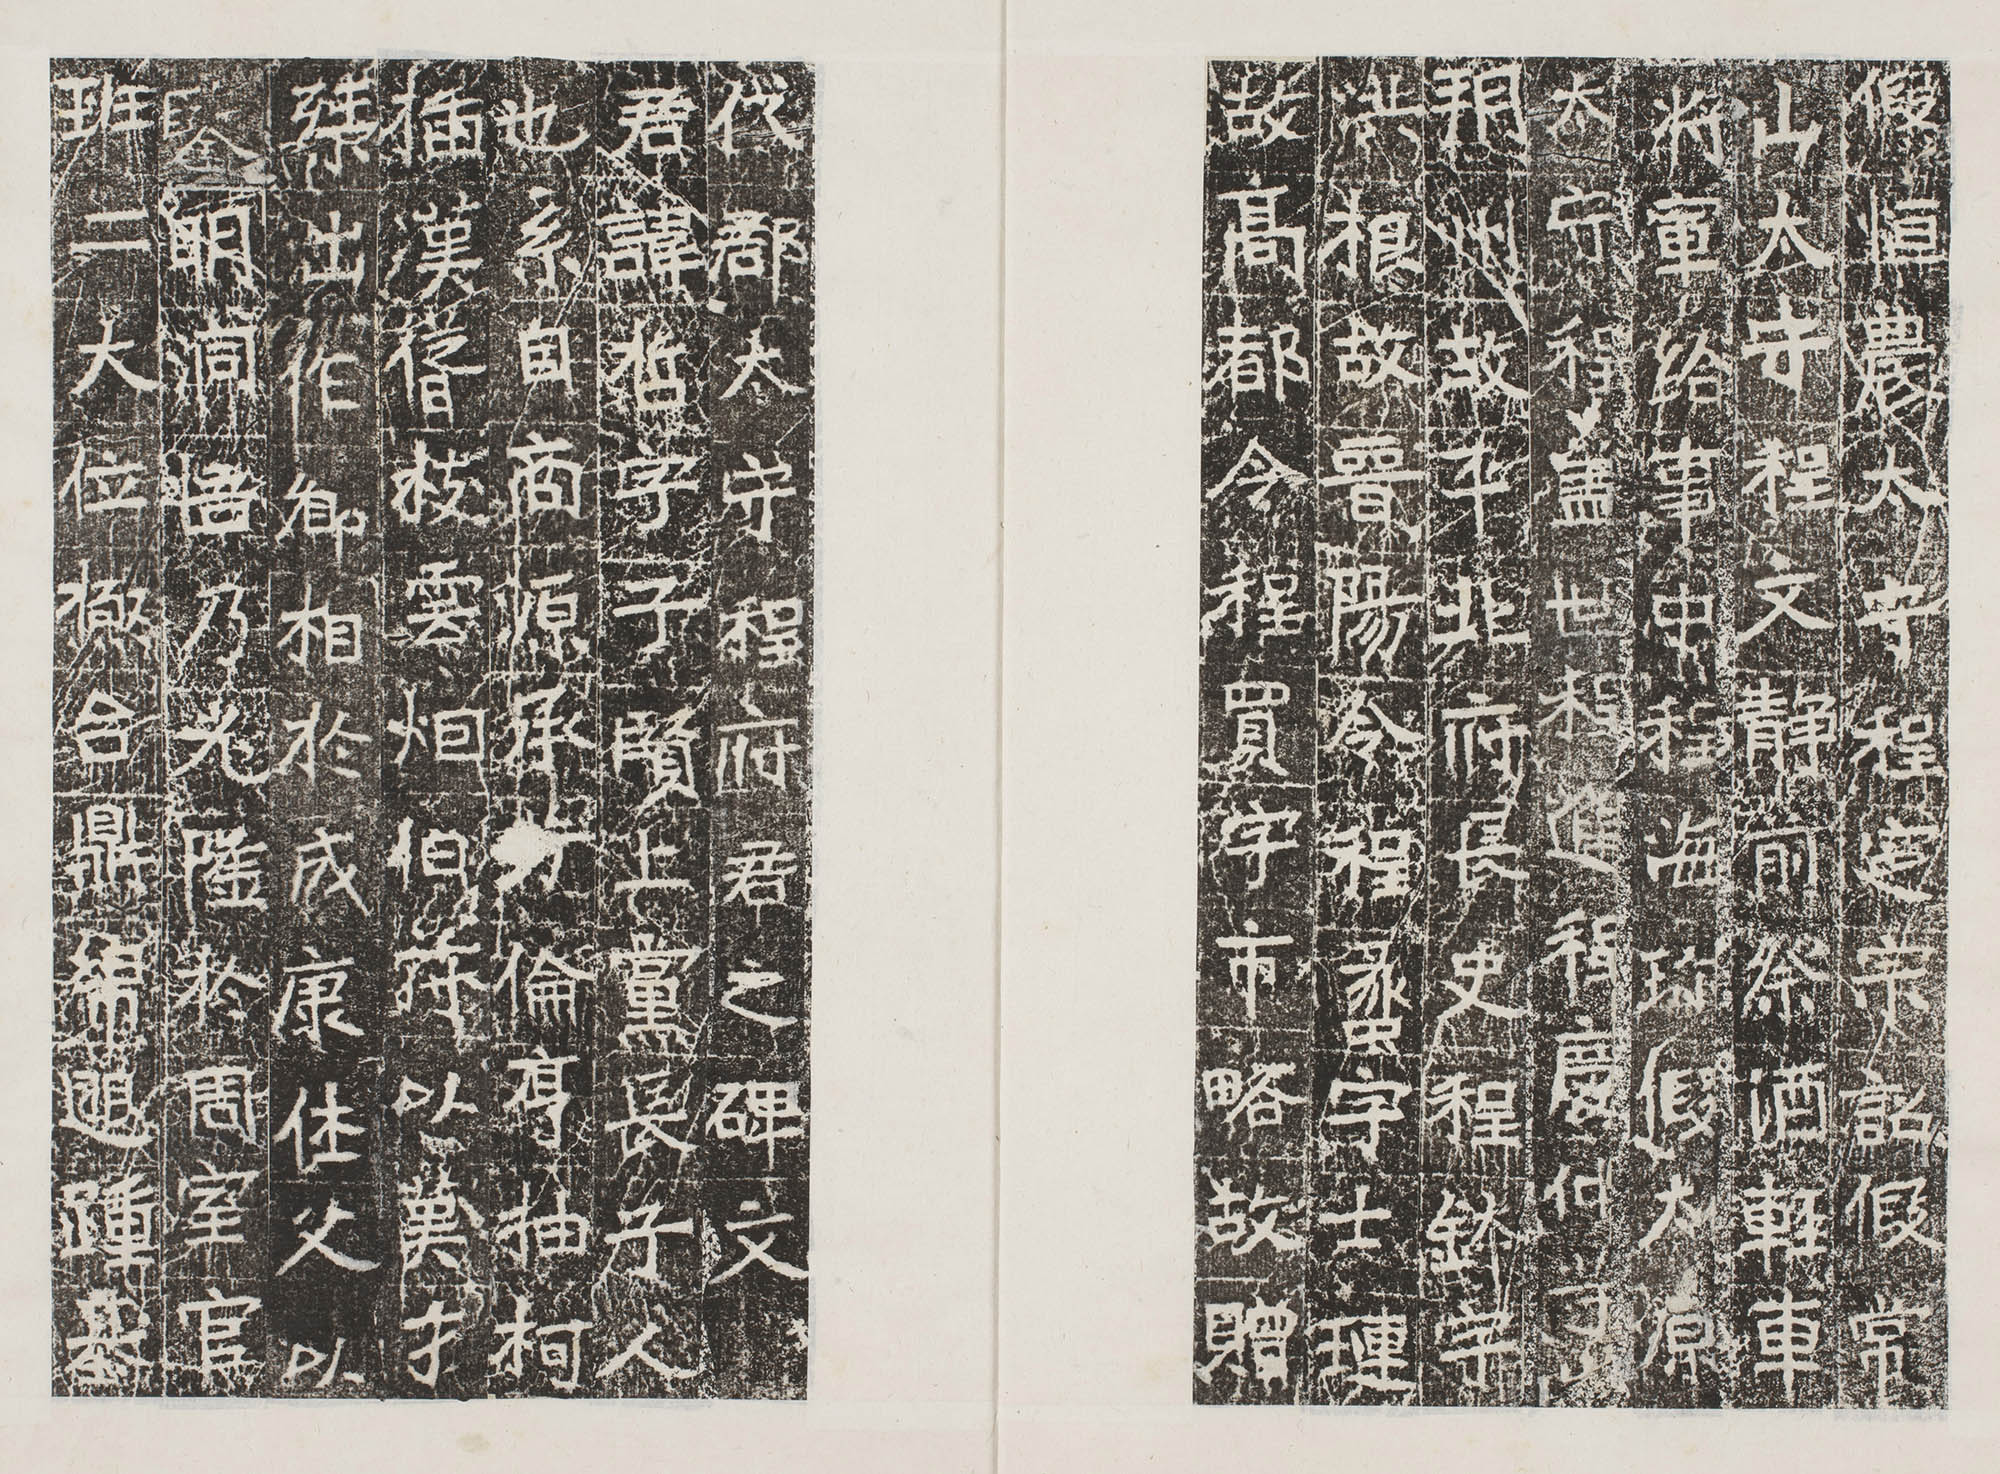 假恒農太守程定宗詔假常
山太守程文靜前祭酒輕車
將軍給事中程海珍假太原
太守程蓋世程進程慶仲
翔州故平北府長史程鉢字
洪根故晉陽令程蟲字士璉
故高都令程買字市略故贈
代郡太守程府君之碑文
君諱哲字子賢上黨長子人
也系自商源承倫喬抽柯
插漢脩枝雲烟伯符以英才
殊出作卿相於成康休父以
明洞悟乃光隆於周室官
班二大位極台鼎綿邈踵基